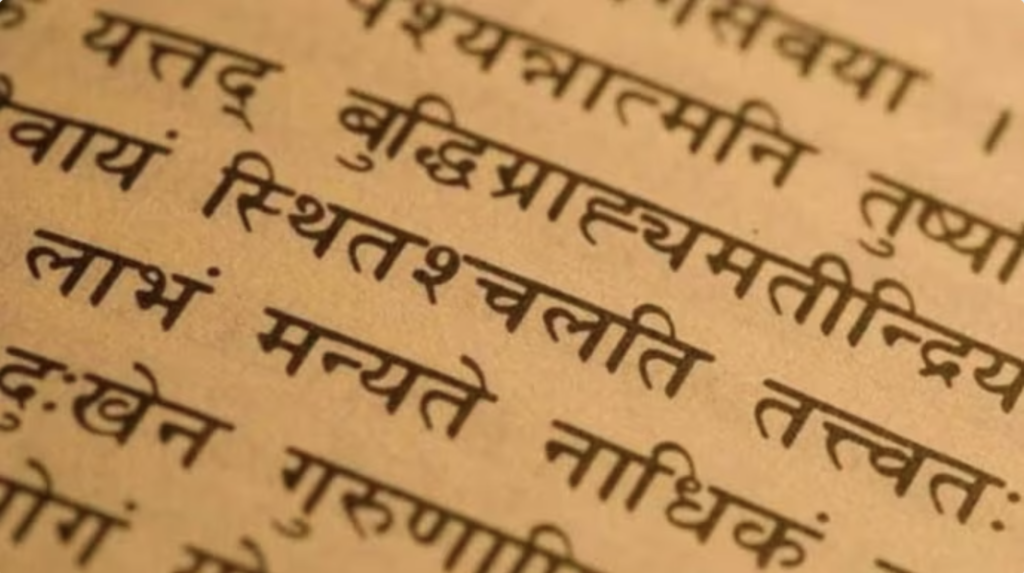 गसेवया ।
पश्यन्नात्मनि तुष्य
यत्तद् बुद्धिग्राह्यमतीन्द्रिय
वायं स्थितश्चलति तत्त्वतः
लाभं मन्यते नाधिकं
दुःखेन गुरुणापि